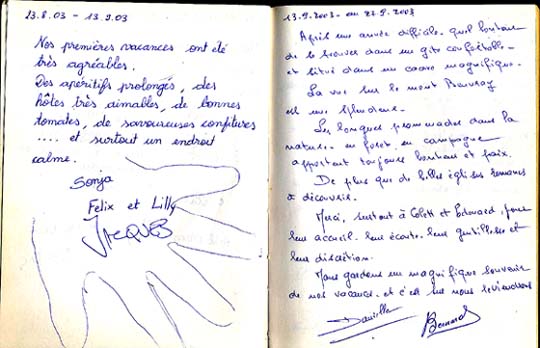 23.8.03 - 13.9.03
Nos premières vacances ont été
très agréables.
Des apéritifs prolongés, des
hôtes très aimables, de bonnes
tomates, de savoureuses confitures
.... et surtout un endroit
calme.
Sonja
Felix et Lilly
JACQUES
13.9.2003 - au 27.9.2003
Après une année difficile - quel bonheur
de se trouver dans un gîte confortable -
et situé dans un cadre magnifique.
La vue sur le mont Beuvray
est une splendeur.
Les longues promenades dans la
nature - en forêt, en campagne
apportent toujours bonheur et paix.
De plus que de belles églises romanes
à découvrir.
Merci, surtout à Colett et Edouard, pour
leur accueil - leur écoute - leur gentillesse et
leur discrétion.
Nous gardons un magnifique souvenir
de nos vacances - et c'est sur nous reviendrons
Danielle
Bernard